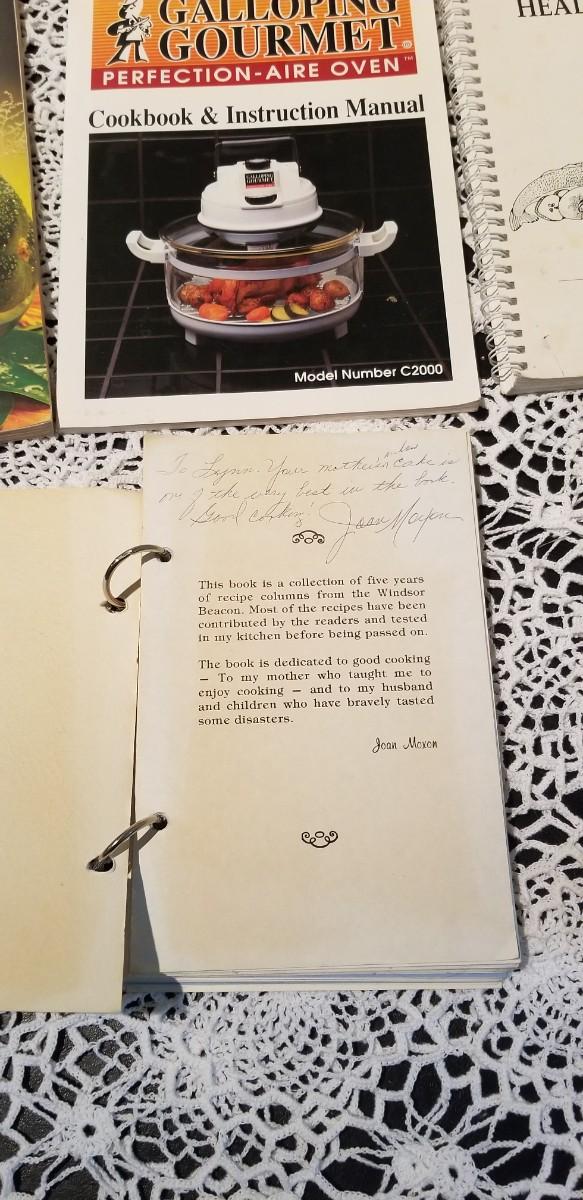 GALLOPING
GOURMET®
PERFECTION-AIRE OVEN™
Cookbook & Instruction Manual
GALLOPING
GOURMET
Model Number C2000
HEAL
To Lynn. Your mother in law
cake is
one of the very best in the book.
Good cooking! Joan Moxon
This book is a collection of five years
of recipe columns from the Windsor
Beacon. Most of the recipes have been
contributed by the readers and tested
in my kitchen before being passed on.
The book is dedicated to good cooking
— To my mother who taught me to
enjoy cooking — and to my husband
and children who have bravely tasted
some disasters.
Joan Moxon